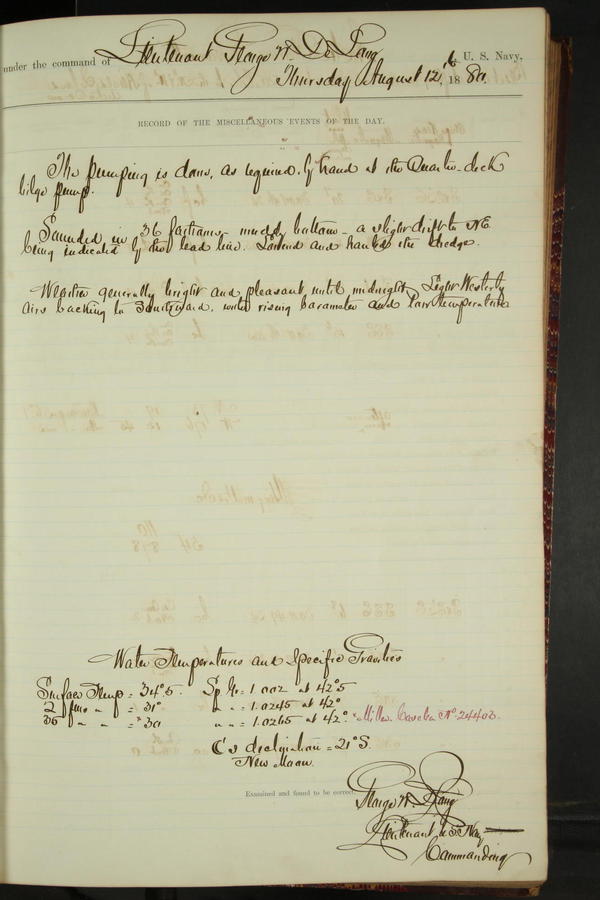 under the command of Lieutenant George W. De Long, U. S. Navy,
Thursday August 12, 1880.
RECORD OF THE MISCELLANEOUS EVENTS OF THE DAY.
The pumping is done, as required, by hand at the Quarter-deck
bilge pump.
Sounded in 36 fathoms - muddy bottom - a slight drift to NE.
being indicated by the lead line. Lowered and hauled the dredge.
Weather generally bright and pleasant until midnight. Light Westerly
airs backing to Southward, with rising barometer and temperature
Water Temperatures and Specific Gravities
Surface Temp = 34°5. Sp. Gr = 1.002 at 42°5
2 fms " " = 31° " " = 1.0245 at 42°
36 " " " = 30 " " = 1.0265 at 42°. Miller Casella No. 24403.
C's declination = 21° S.
New Moon.
Examined and found to be correct.
George W. De Long
Lieutenant U.S. Navy
Commanding